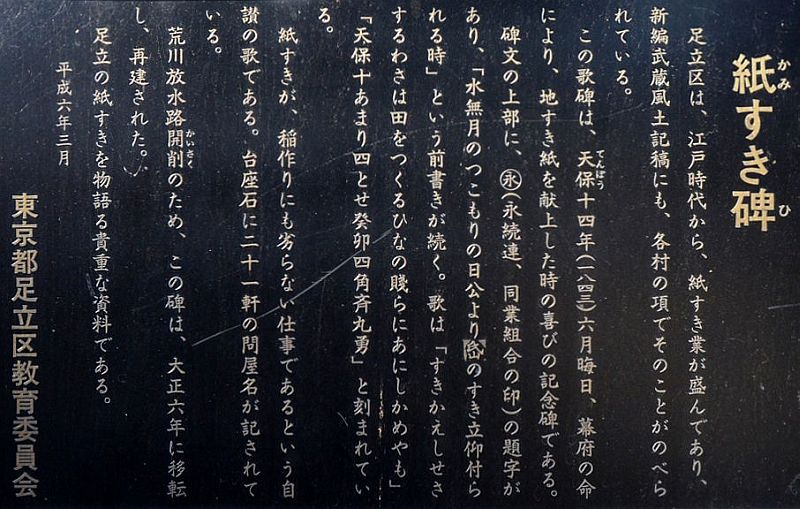 紙すき碑
かみ ひ
足立区は、江戸時代から、紙すき業が盛んであり、
新編武蔵風土記稿にも、各村の項でそのことがのべら
れている。
この歌碑は、天保十四年(一八四三)六月晦日、幕府の命
てんぽう
により、地すき紙を献上した時の喜びの記念碑である。
碑文の上部に、㊌(永続連、同業組合の印)の題字が
あり、「水無月のつこもりの日公より のすき立仰付ら
れる時」という前書きが続く。歌は「すきかえしせさ
するわさは田をつくるひなの賤らにあにしかめやも」
「天保十あまり四とせ癸卯四角斉丸勇」と刻まれてい
る。
紙すきが、稲作りにも劣らない仕事であるという自
讃の歌である。台座石に二十一軒の問屋名が記されて
いる。
荒川放水路開削のため、この碑は、大正六年に移転
かいさく
し、再建された。
足立の紙すきを物語る貴重な資料である。
平成六年三月
東京都足立区教育委員会